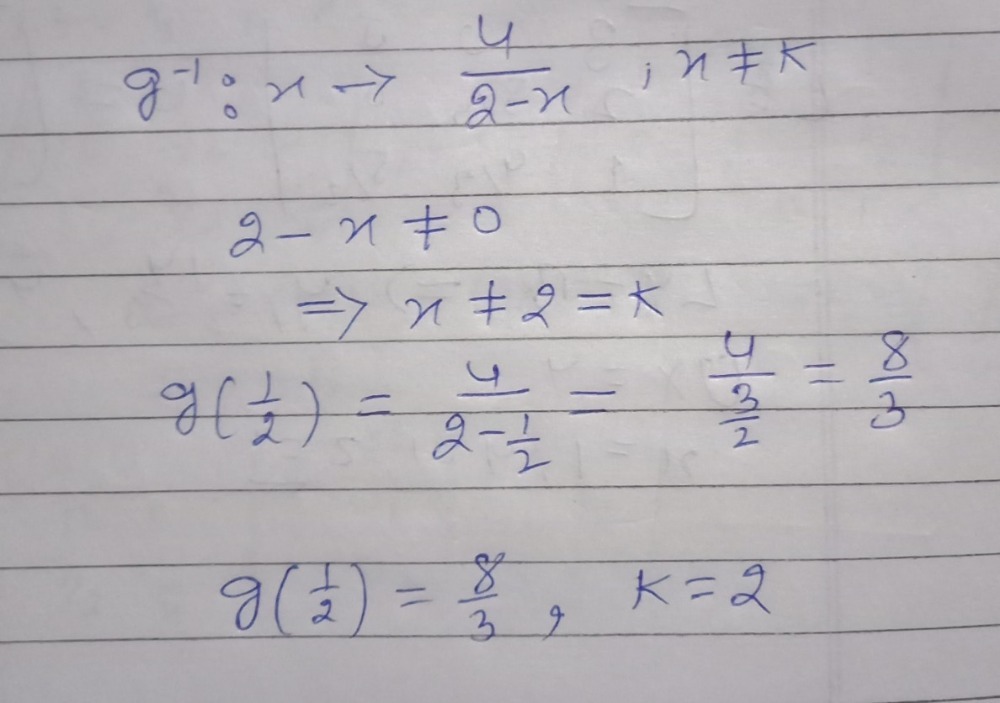 g⁻¹ : x → 4/(2-x) , x ≠ K
2 - x ≠ 0
⇒ x ≠ 2 = K
g(1/2) = 4/(2-1/2) = 4/(3/2) = 8/3
g(1/2) = 8/3 , K = 2